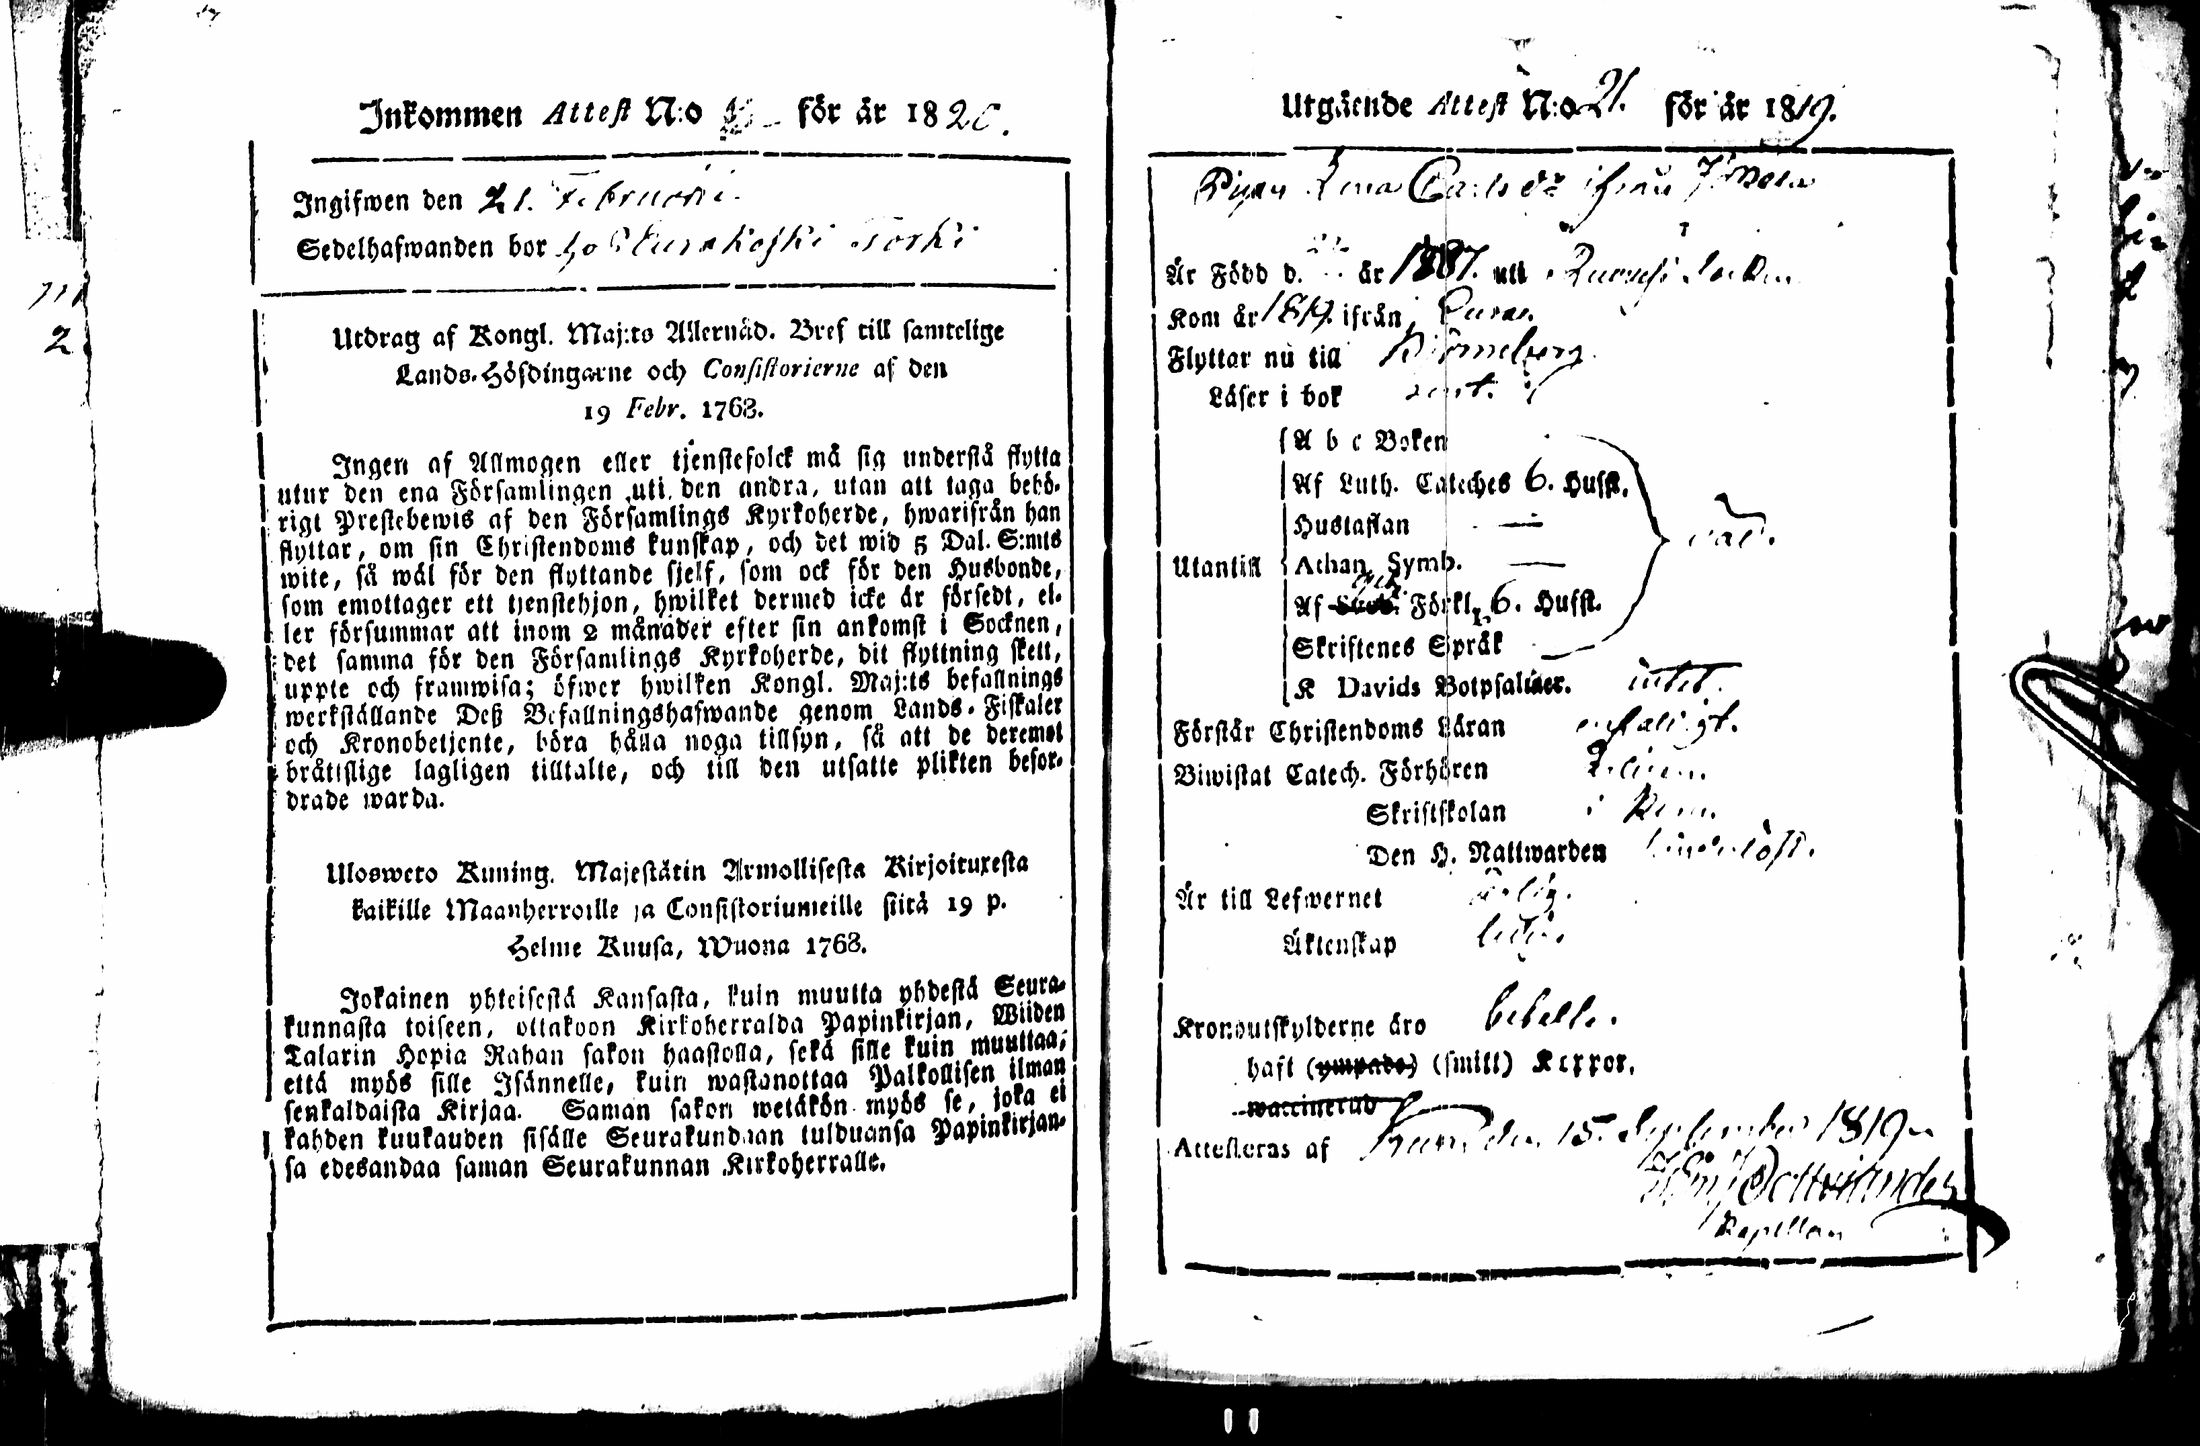 Inkommen Attest N:o för år 1820.
Ingifwen den 21. Februari.
Sedelhafwanden bor
Utdrag af Kongl. Maj:ts Allernåd. Bref till samtelige
Lands-Höfdingarne och Consistorierne af den
19 Febr. 1763.
Ingen af Allmogen eller tjenstefolck må sig understå flytta
utur den ena Församlingen uti den andra, utan att taga behö-
rigt Prestebewis af den Församlings Kyrkoherde, hwarifrån han
flyttar, om sin Christendoms kunskap, och det wid 5 Dal. S:mts
wite, så wäl för den flyttande sjelf, som ock för den Husbonde,
som emottager ett tjenstehjon, hwilket dermed icke är försedt, el-
ler försummar att inom 2 månader efter sin ankomst i Socknen,
det samma för den Församlings Kyrkoherde, dit flyttning skett,
uppte och framwisa; öfwer hwilken Kongl. Maj:ts befallnings
werkställande Deß Befallningshafwande genom Lands-Fiskaler
och Kronobetjente, böra hålla noga tillsyn, så att de deremot
bråttslige lagligen tilltalte, och till den utsatte plikten befor-
drade warda.
Ulosweto Kuning. Majestätin Armollisesta Kirjoituxesta
kaikille Maanherroille ja Consistoriumeille siitä 19 p.
Helme Kuusa, Wuona 1763.
Jokainen yhteisestä Kansasta, kuin muutta yhdestä Seura-
kunnasta toiseen, ottakoon Kirkoherralda Papinkirjan, Wiiden
Talarin Hopia Rahan sakon haastolla, sekä sille kuin muuttaa,
että myös sille Isännelle, kuin wastanottaa Palkollisen ilman
senkaldaista Kirjaa. Saman sakon wetäkön myös se, joka ei
kahden kuukauden sisälle Seurakundaan tulduansa Papinkirjan-
sa edesandaa saman Seurakunnan Kirkoherralle.
Utgående Attest N:o 21. för år 1819.
Pigan Lena Carlsdr ifrån
Är Född d. år 1787. uti Socken
Kom år 1819. ifrån Eura.
Flyttar nu till Björneborg
Läser i bok
A b c Boken
Af Luth. Cateches 6. Hufst.
Hustaflan —
Utantill Athan. Symb. —
Af Förkl. 6. Hufst.
Skriftenes Språk
K Davids Botpsalmer. intet.
Förstår Christendoms Läran enfaldigt.
Biwistat Catech. Förhören
Skriftskolan
Den H. Nattwarden
Är till Lefwernet ärlig.
Äktenskap ledig.
Kronoutskylderne äro betalte.
haft (ympade) (smitt) Koppor.
waccinerad
Attesteras af den 15. September 1819
Kapellan